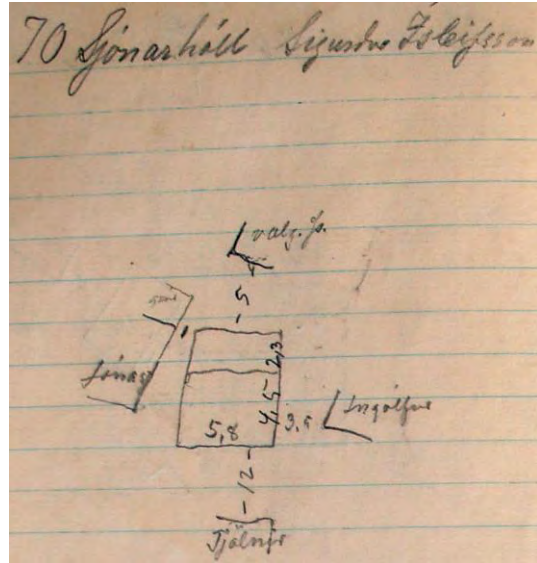 70 Sjónarhóll Sigurður Ísleifsson
valg. Js.
5
Jónas
2,3
4,5
5,8
3,5
Ingólfur
12
Fjölnir